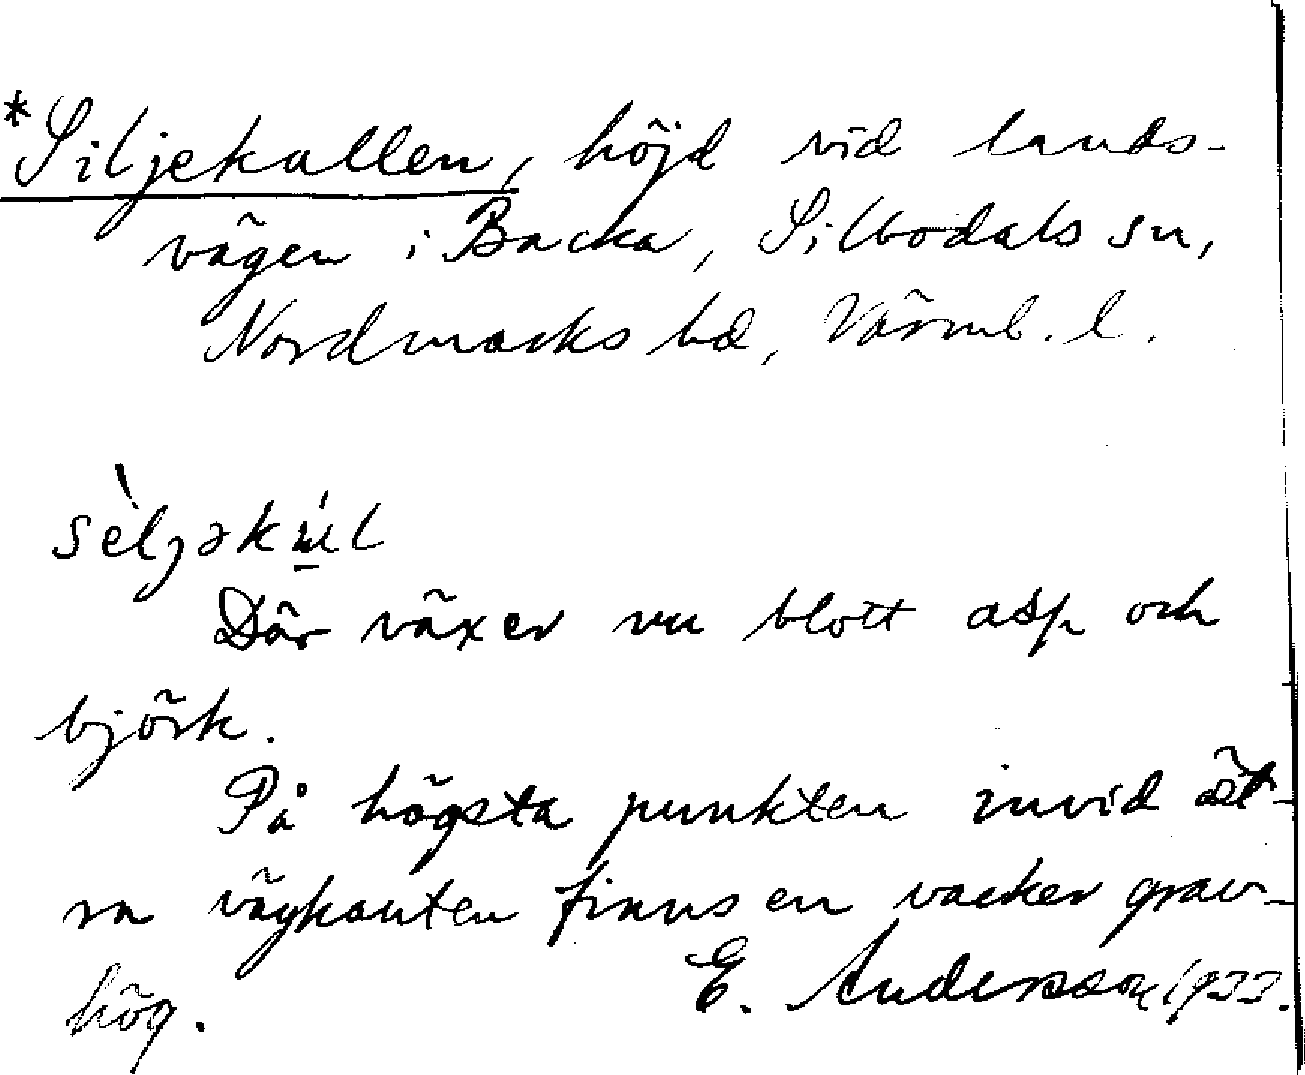 *Siljekullen, höjd vid lands-
vägen i Backa, Silbodals sn,
Nordmarks hd, Värml. l.
Där växer nu blott asp och
björk.
På högsta punkten invid öst-
ra vägkanten finns en vacker grav-
hög. E. Andersson 1933.